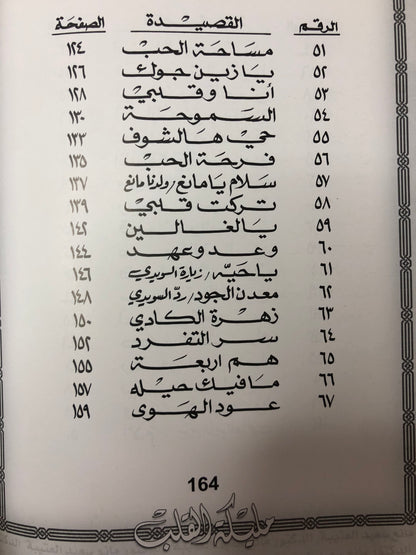 الرقم القصيدة الصفحة
٥١ مساحة الحب ١٢٤
٥٢ يا زين جولك ١٢٦
٥٣ أنا وقلبي ١٢٨
٥٤ السموحة ١٣٠
٥٥ حي هالشوف ١٣٣
٥٦ فرحة الحب ١٣٥
٥٧ سلام يا مانع/ولدنا مانع ١٣٧
٥٨ تركت قلبي ١٣٩
٥٩ يالغالين ١٤٢
٦٠ وعد وعهد ١٤٤
٦١ يا حيه/زيارة السويدي ١٤٦
٦٢ معدن الجود/ردّ السويدي ١٤٨
٦٣ زهرة الكادي ١٥٠
٦٤ سر التفرد ١٥٢
٦٥ هم اربعة ١٥٥
٦٦ ما فيك حيله ١٥٧
٦٧ عود الهوى ١٥٩
164
مليكة القلب